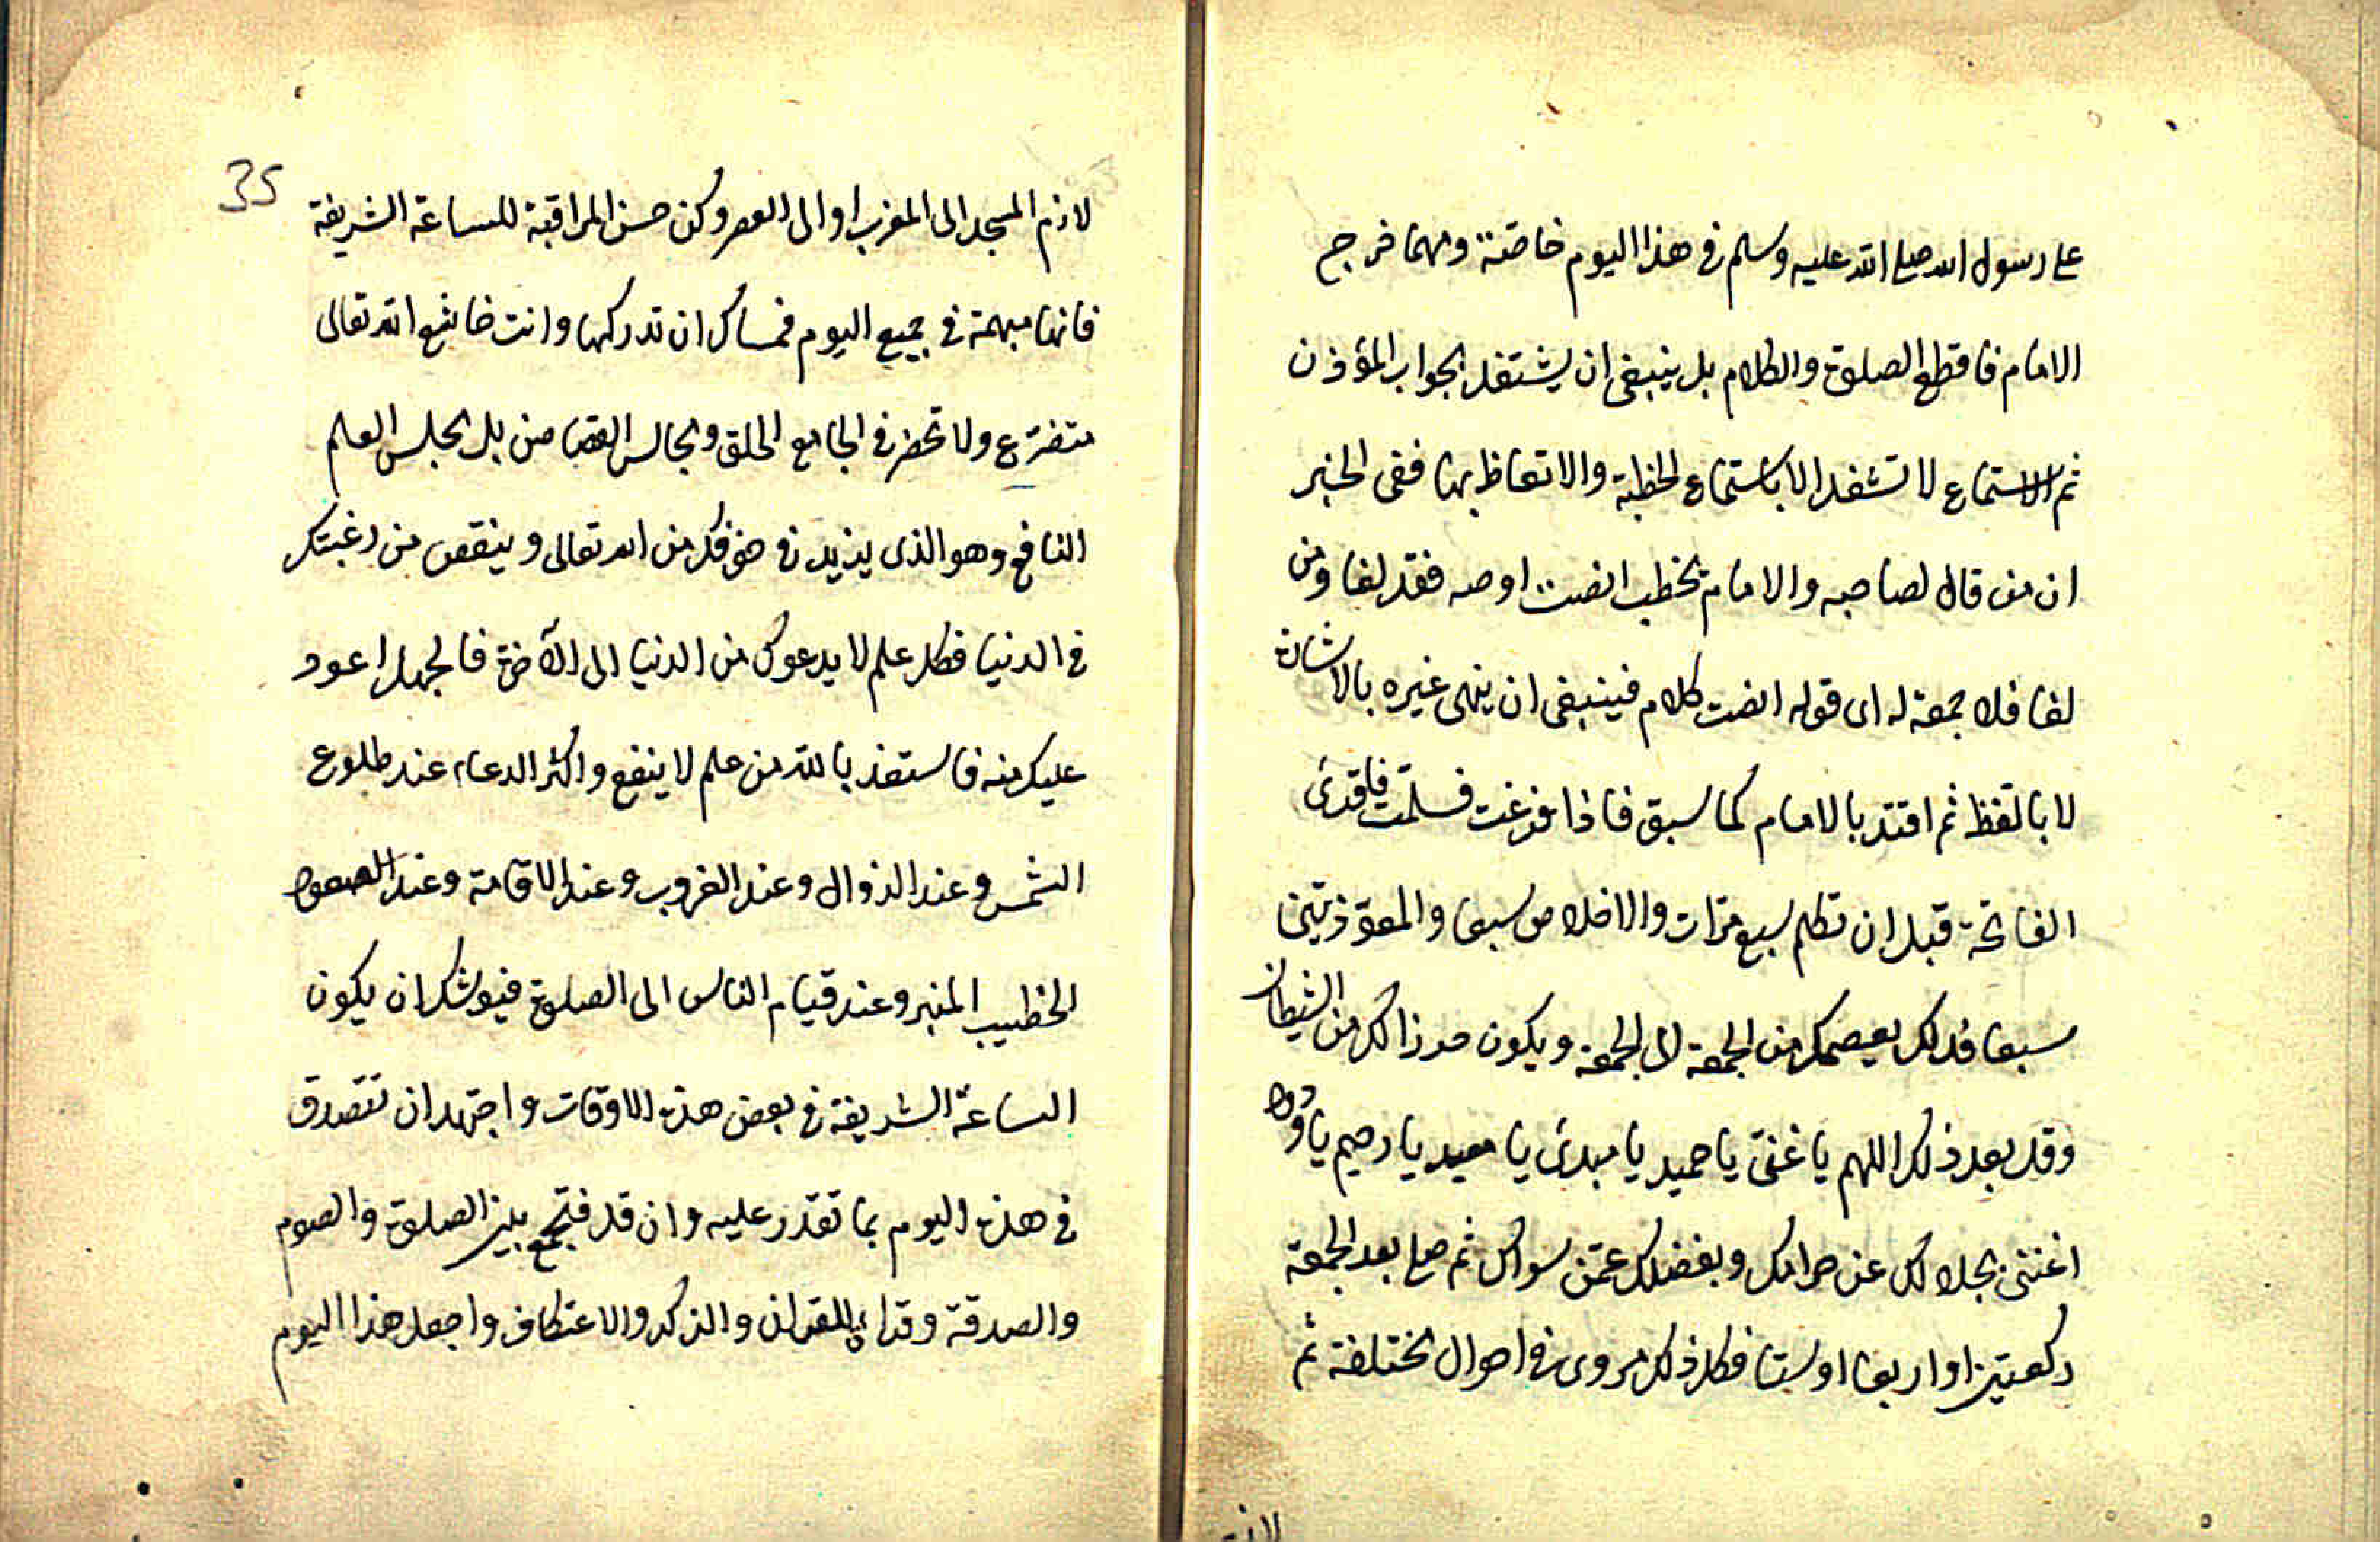 على رسول الله صلى الله عليه وسلم في هذا اليوم خاصة ومهما خرج
الامام فاقطع الصلوة والكلام بل ينبغي ان يشتغل بجواب المؤذن
ثم الاستماع لا تشغل الا باستماع الخطبة والاتعاظ بها ففي الخبر
ان من قال لصاحبه والامام يخطب انصت او صه فقد لغا ومن
لغا فلا جمعة له اى قوله انصت كلام فينبغي ان ينهى غيره بالاشارة
لا باللفظ ثم اقتد بالامام كما سبق فاذا فرغت فسلمت فاقرئ
الفاتحة قبل ان تكلم سبع مرّات والاخلاص سبعا والمعوّذتين
سبعا فذلك يعصمك من الجمعة الى الجمعة ويكون حرزا لك من الشيطان
وقل بعد ذلك اللهم يا غنىّ يا حميد يا مبدئ يا معيد يا رحيم يا ودود
اغننى بحلالك عن حرامك وبفضلك عمّن سواك ثم صل بعد الجمعة
ركعتين او اربعا او ستا فكل ذلك مروى في احوال مختلفة ثم
35
لازم المسجد الى المغرب او الى العصر وكن حسن المراقبة للساعة الشريفة
فانها مبهمة في جميع اليوم فعساك ان تدركها وانت خاشع لله تعالى
متضرّع ولا تحضر في الجامع الحلق ومجالس القصاص بل مجلس العلم
النافع وهو الذى يزيد في خوفك من الله تعالى وينقص من رغبتك
في الدنيا فكل علم لا يدعوك من الدنيا الى الآخرة فالجهل اعود
عليك منه فاستعذ بالله من علم لا ينفع واكثر الدعاء عند طلوع
الشمس وعند الزوال وعند الغروب وعند الاقامة وعند الصعود
الخطيب المنبر وعند قيام الناس الى الصلوة فيوشك ان يكون
الساعة الشريفة في بعض هذه الاوقات واجتهد ان تتصدق
في هذه اليوم بما تقدر عليه وان قل فتجمع بين الصلوة والصوم
والصدقة وقراءة القران والذكر والاعتكاف واجعل هذا اليوم